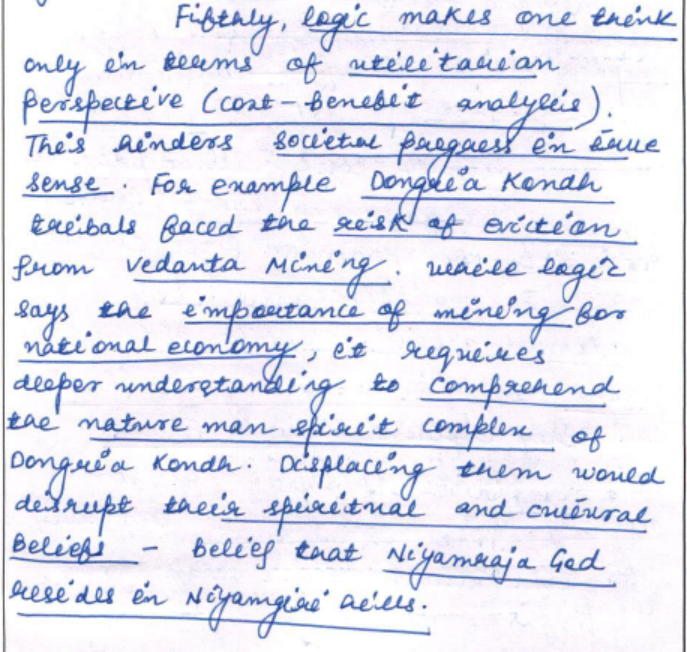 Fifthly, logic makes one think
only in terms of utilitarian
perspective (cost-benefit analysis).
This hinders societal progress in true
sense. For example Dongria Kondh
tribals faced the risk of eviction
from Vedanta Mining. While logic
says the importance of mining for
national economy, it requires
deeper understanding to comprehend
the nature man spirit complex of
Dongria Kondh. Displacing them would
disrupt their spiritual and cultural
Beliefs - belief that Niyamraja God
resides in Niyamgiri hills.